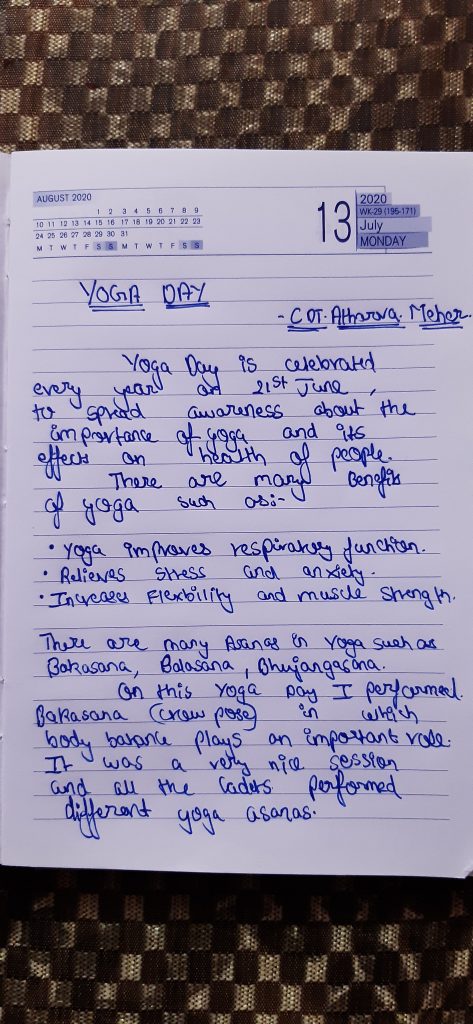 AUGUST 2020
1 2 3 4 5 6 7 8 9
10 11 12 13 14 15 16 17 18 19 20 21 22 23
24 25 26 27 28 29 30 31
M T W T F S S M T W T F S S
13
2020
WK-29 (195-171)
July
MONDAY
YOGA DAY
- CDT. Atharva. Meher.
Yoga Day is celebrated
every year on 21st June,
to spread awareness about the
importance of yoga and its
effects on health of people.
There are many Benefits
of yoga such as:-
• Yoga improves respiratory function.
• Relieves stress and anxiety.
• Increases Flexibility and muscle strength.
There are many Asanas in Yoga such as
Bakasana, Balasana, Bhujangasana.
On this Yoga Day I performed.
Bakasana (crow pose) in which
body balance plays an important role.
It was a very nice session
and all the Cadets performed
different yoga asanas.